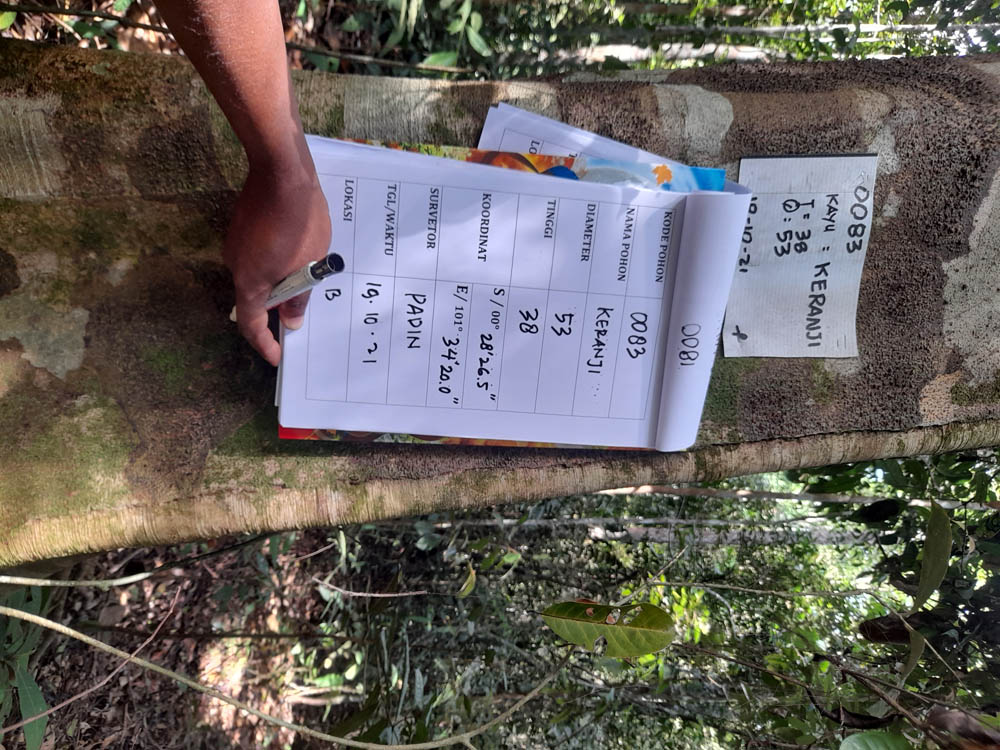 0083
KAYU : KERANJI
T = 38
Ø : 53
19-10-21
0081
KODE POHON 0083
NAMA POHON KERANJI
DIAMETER 53
TINGGI 38
KOORDINAT S / 00° 28'26.5"
E/ 101° 34'20.0"
SURVETOR PADIN
TGL/WAKTU 19.10.21
LOKASI B
LO